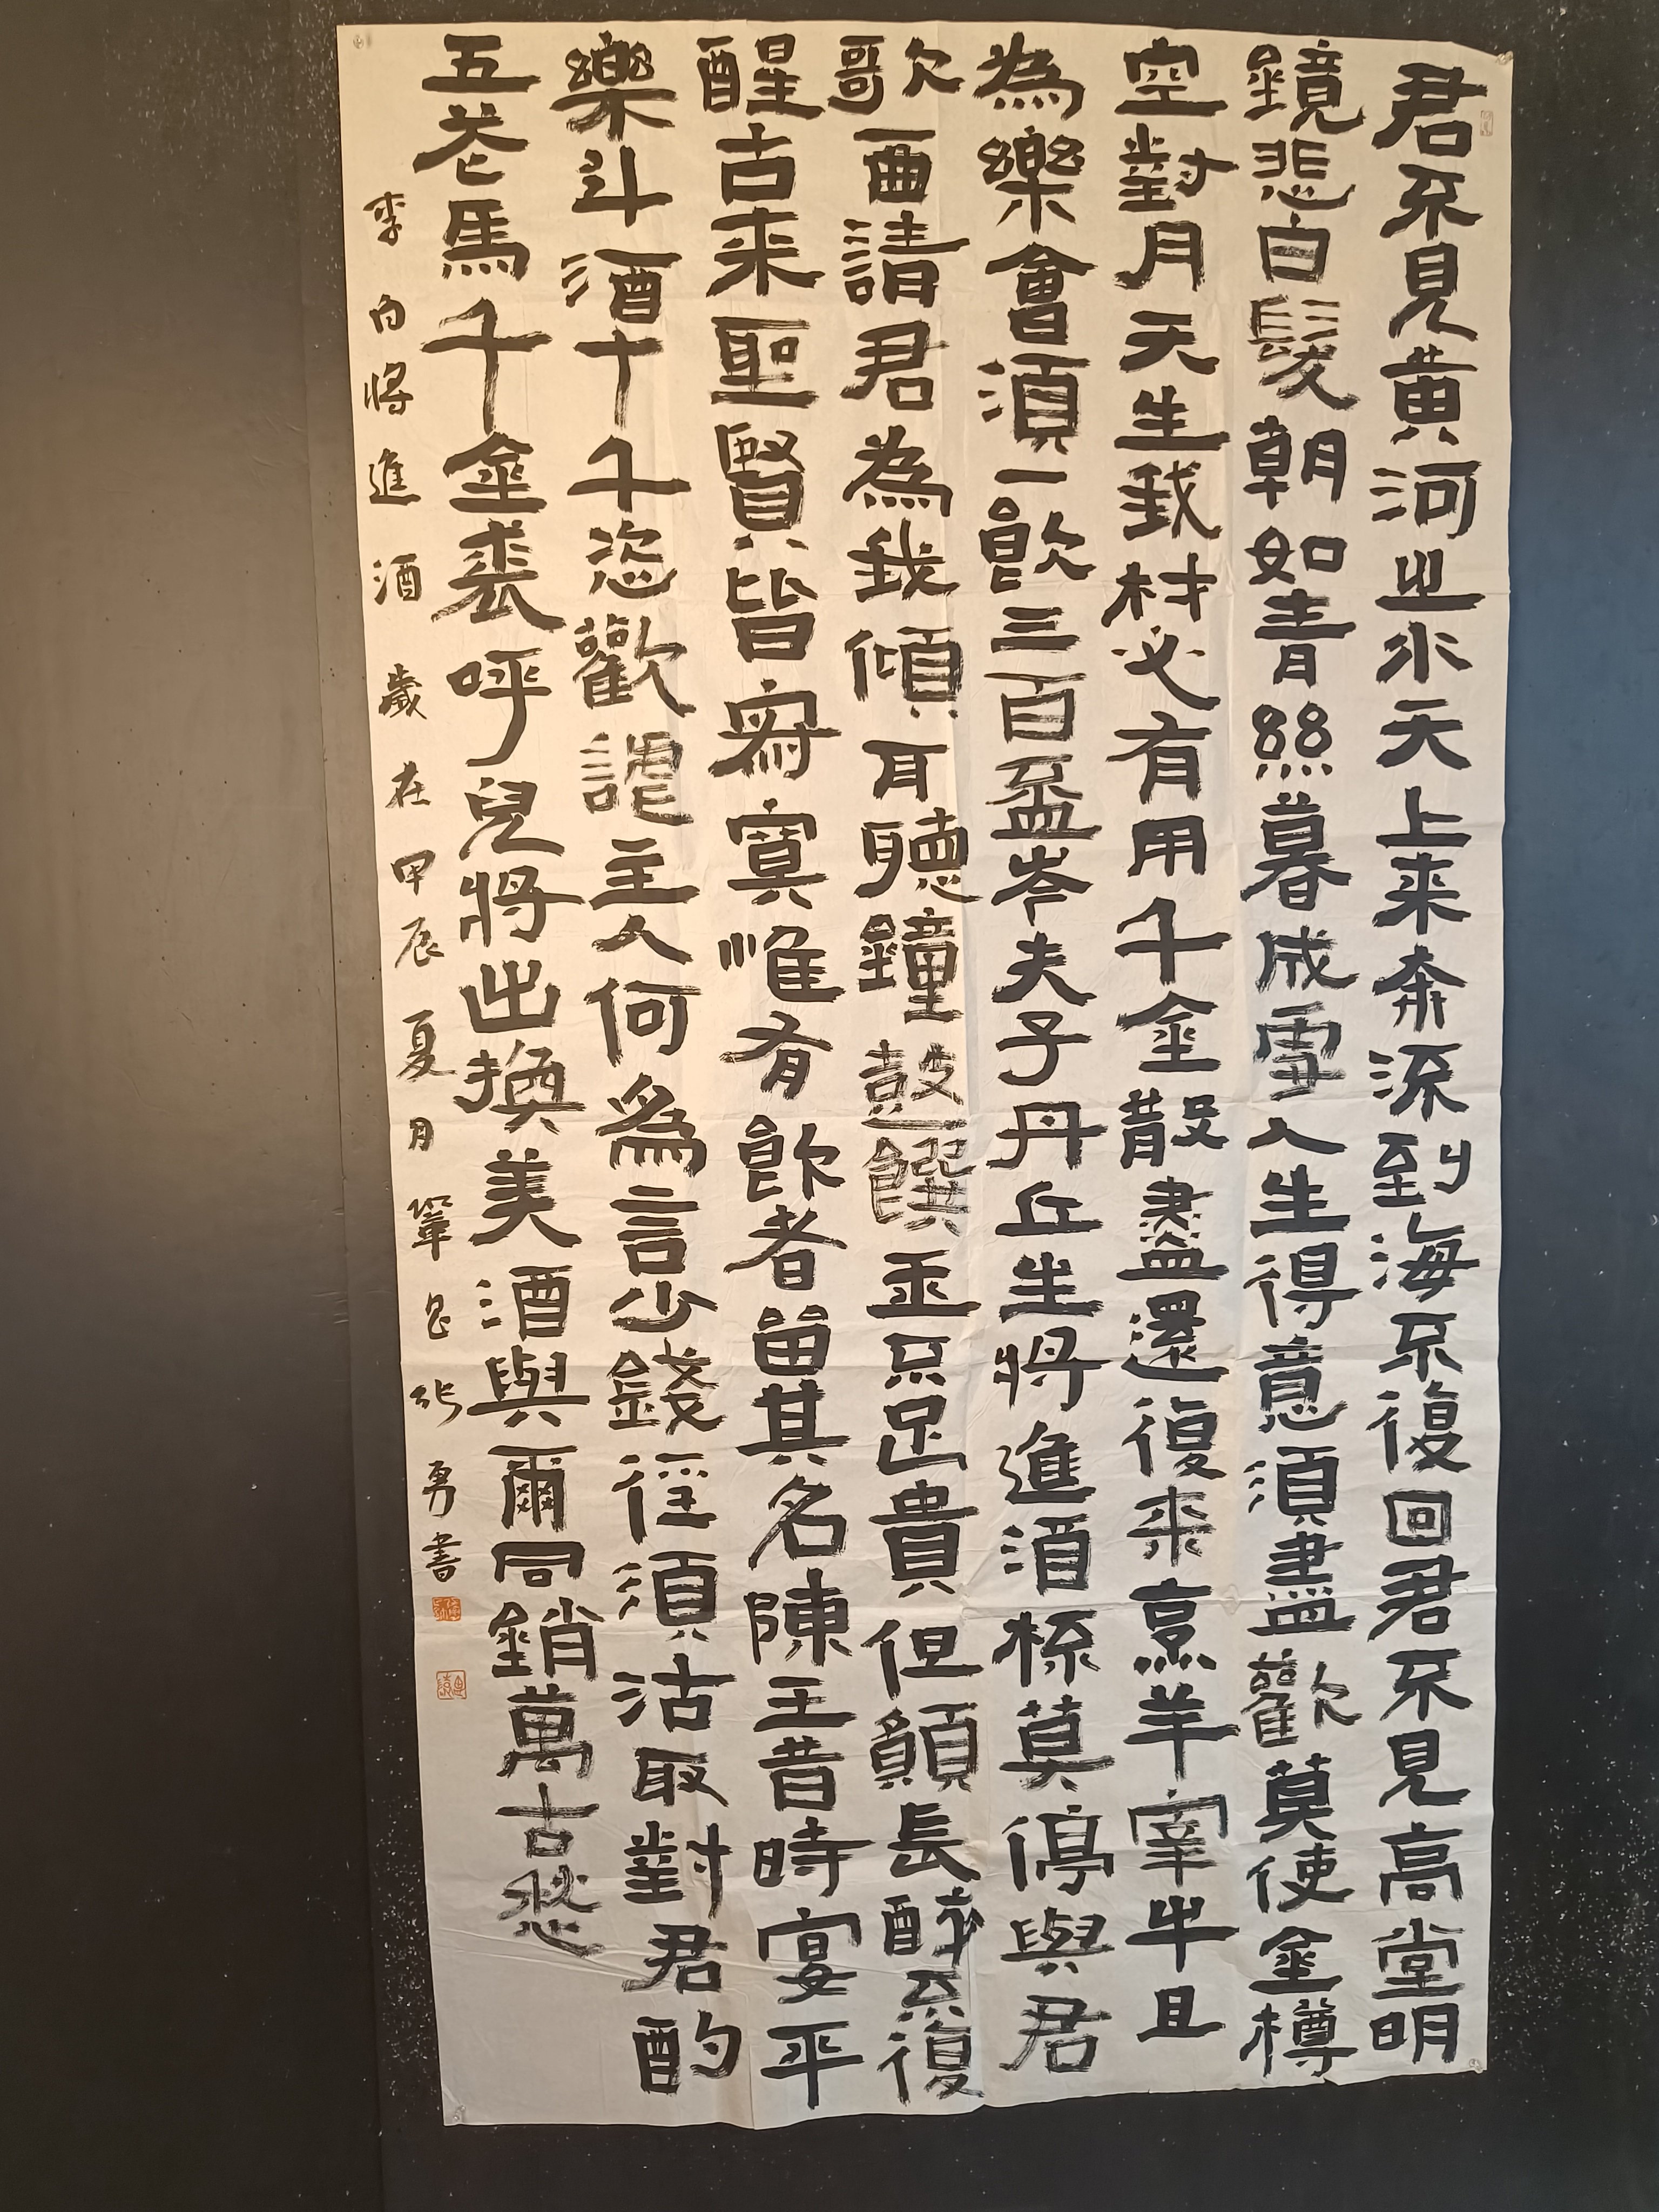 君不見黃河之水天上来奔流到海不復回君不見高堂明
鏡悲白髮朝如青絲暮成雪人生得意須盡歡莫使金樽
空對月天生我材必有用千金散盡還復来烹羊宰牛且
為樂會須一飲三百盃岑夫子丹丘生將進酒杯莫停與君
歌一曲請君為我傾耳聽鐘鼓饌玉不足貴但願長醉不復
醒古来聖賢皆寂寞惟有飲者留其名陳王昔時宴平
樂斗酒十千恣歡謔主人何為言少錢徑須沽取對君酌
五花馬千金裘呼兒將出換美酒與爾同銷萬古愁
李白將進酒歲在甲辰夏月肇昌張勇書